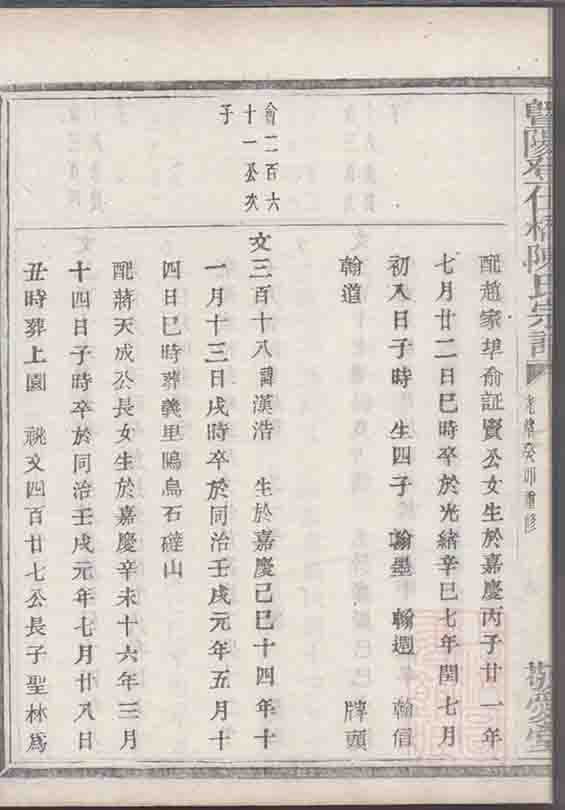 暨陽孝仁橋陳氏宗譜
光緒癸卯重修
敬愛堂
配趙家埠俞証賢公女生於嘉慶丙子廿一年
七月廿二日巳時卒於光緒辛巳七年閏七月
初八日子時 生四子 翰墨 翰 翰信
翰道 牌頭
會一百六
十一公次
子
文三百十八諱漢浩 生於嘉慶己巳十四年十
一月十三日戌時卒於同治壬戌元年五月十
四日巳時葬義里鴎鳥石磋山
配蔣天成公長女生於嘉慶辛未十六年三月
十四日子時卒於同治壬戌元年七月廿八日
丑時葬上園 祧文四百廿七公長子聖林爲